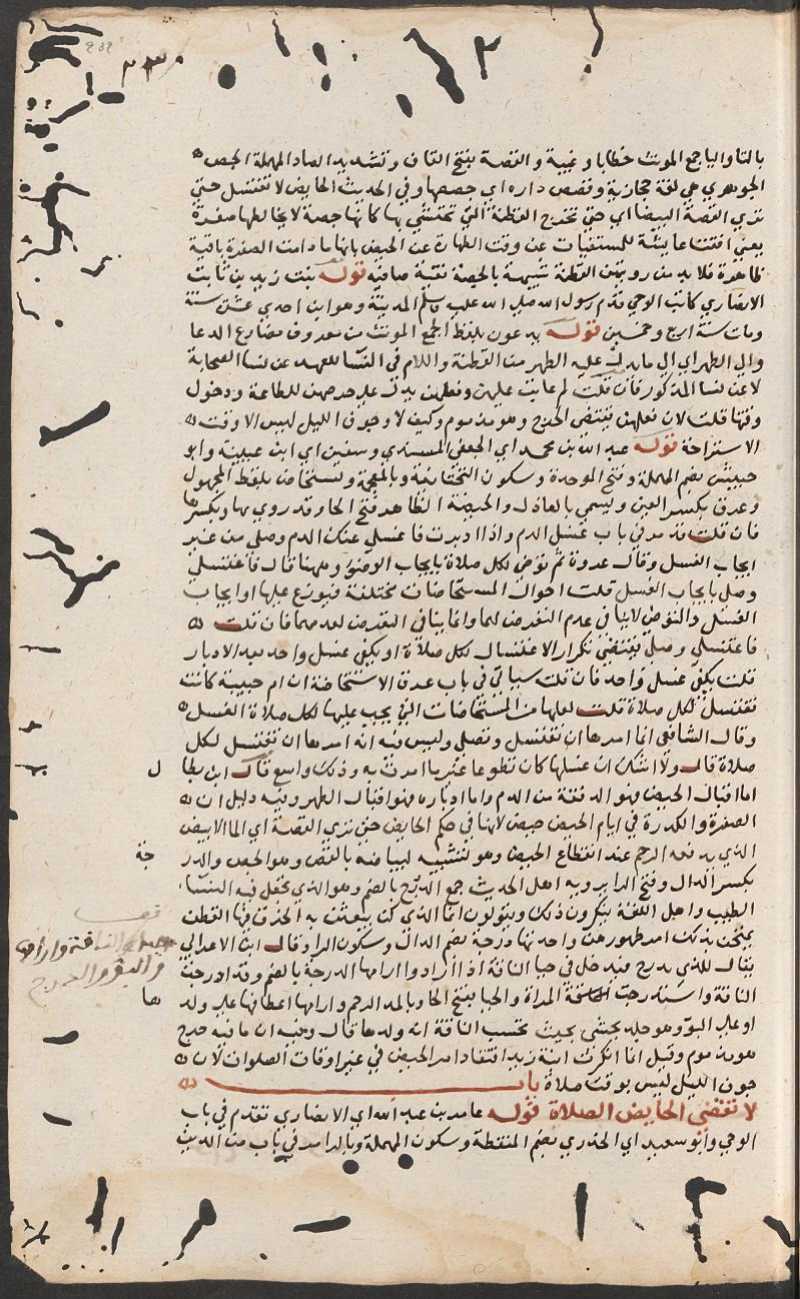 ٢٣٠
232
بالتا واليا جمع المونث خطابا وغيبة والقصة بفتح القاف وتشديد الصاد المهملة الجص
الجوهري هي لغة حجازية وقصص داره اي جصصها وفي الحديث الحايض لا تغتسل حتي
تري القصة البيضا اي حتي تخرج القطنة التي تحتشي بها كانها جصة لا يخالطها صفرة
يعني افتت عايشة للمستفتيات عن وقت الطهارة عن الحيض بانها ما دامت الصفرة باقية
ظاهرة فلا بد من رويتهن القطنة شبيهة بالجصة نقية صافية قوله بنت زيد بن ثابت
الانصاري كاتب الوحي قدم رسول الله صلي الله عليه وسلم المدينة وهو ابن احدي عشر سنة
ومات سنة اربع وخمسين قوله يدعون بلفظ الجمع المونث من معروف مضارع الدعا
والي الطهر اي الي ما يدل علي الطهر من القطنة واللام في النسا للعهد عن نسا الصحابة
لا عن نسا المذكور فان قلت لم عابت عليهن وفعلهن يدل علي حرصهن للطاعة ودخول
وقتها قلت لان فعلهن يقتضي الحرج وهو مذموم وكيف لا وجوف الليل ليس الا وقت
الاستراحة قوله عبد الله بن محمد اي الجعفي المسندي وسفين اي ابن عيينة وابو
حبيش بضم المهملة وفتح الموحدة وسكون التحتانية وبالمعجمة وتستحاض بلفظ المجهول
وعرق بكسر العين ويسمي بالعاذل والحيضة الظاهر فتح الحا وقد روي بها وبكسرها
فان قلت قد مر في باب غسل الدم واذا ادبرت فاغسلي عنك الدم وصلي من غير
ايجاب الغسل وقال عروة ثم توضي لكل صلاة بايجاب الوضوء وههنا قال فاغتسلي
وصلي بايجاب الغسل قلت احوال المستحاضات مختلفة فيوزع عليها او ايجاب
الغسل والتوضي لا ينافي عدم التعرض لهما وانما ينافي التعرض لعدمهما فان قلت
فاغتسلي وصلي يقتضي تكرار الاغتسال لكل صلاة او يكفي غسل واحد بعد الادبار
قلت يكفي غسل واحد فان قلت سياتي في باب عرق الاستحاضة ان ام حبيبة كانت
تغتسل لكل صلاة قلت لعلها من المستحاضات التي يجب عليها لكل صلاة الغسل
وقال الشافعي انما امرها ان تغتسل وتصلي وليس فيه انه امرها ان تغتسل لكل
صلاة قال ولا اشك ان غسلها كان تطوعا غير ما امرت به وذلك واسع قال ابن بطا ل
اما اقبال الحيض فهو الدفعة من الدم واما ادباره فهو اقبال الطهر وفيه دليل ان
الصفرة والكدرة في ايام الحيض حيض لانها في حكم الحايض حتي تري القصة اي الما الابيض
الذي يدفعه الرحم عند انقطاع الحيض وهو تشبيه لبياضه بالقص وهو الجص والدر جة
بكسر الدال وفتح الرا يرويه اهل الحديث جمع الدرج بالضم وهو الذي تجعل فيه النسا
الطيب واهل اللغة ينكرون ذلك ويقولون انما الذي كن يبعثن به الخرق فيها القطن
يمتحن بذلك امر طهورهن واحدتها درجة بضم الدال وسكون الرا وقال ابن الاعرابي
يقال للذي يدرج فيدخل في حيا الناقة اذا ارادوا ارامها الدرجة بالضم وقد ادرجت
الناقة واستدرجت المراة والحيا بفتح الحا وبالمد الرحم وارامها اعطافها علي ولد ها
او علي البو وهو جلد يحشي بحيث تحسب الناقة انه ولدها قال وفيه ان ما فيه حرج
هو مذموم وقيل انما انكرت ابنة زيد افتقاد امر الحيض في غير اوقات الصلوات لان
جوف الليل ليس بوقت صلاة باب
لا تقضي الحايض الصلاة قوله عامر بن عبد الله اي الانصاري تقدم في باب
الوحي وابو سعيد اي الخدري بضم المنقطة وسكون المهملة وبالرا مر في باب من الدين